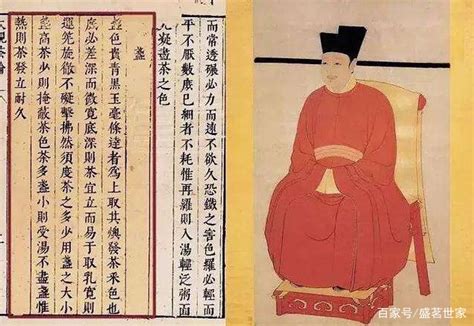 而常透碾必力而速不欲久恐鐵之害色羅必輕而
平不厭數庶已細者不耗惟再羅則入湯輕泛粥面
光凝盡茶之色
盞
盞色貴青黑玉毫條達者爲上取其煥發茶采色也
底必差深而微寬底深則茶宜立而易于取乳寬則
運筅旋徹不礙擊拂然須度茶之多少用盞之大小
盞高茶少則掩蔽茶色茶多盞小則受湯不盡盞惟
熱則茶發立耐久
大觀茶論
百家号/盛茗世家